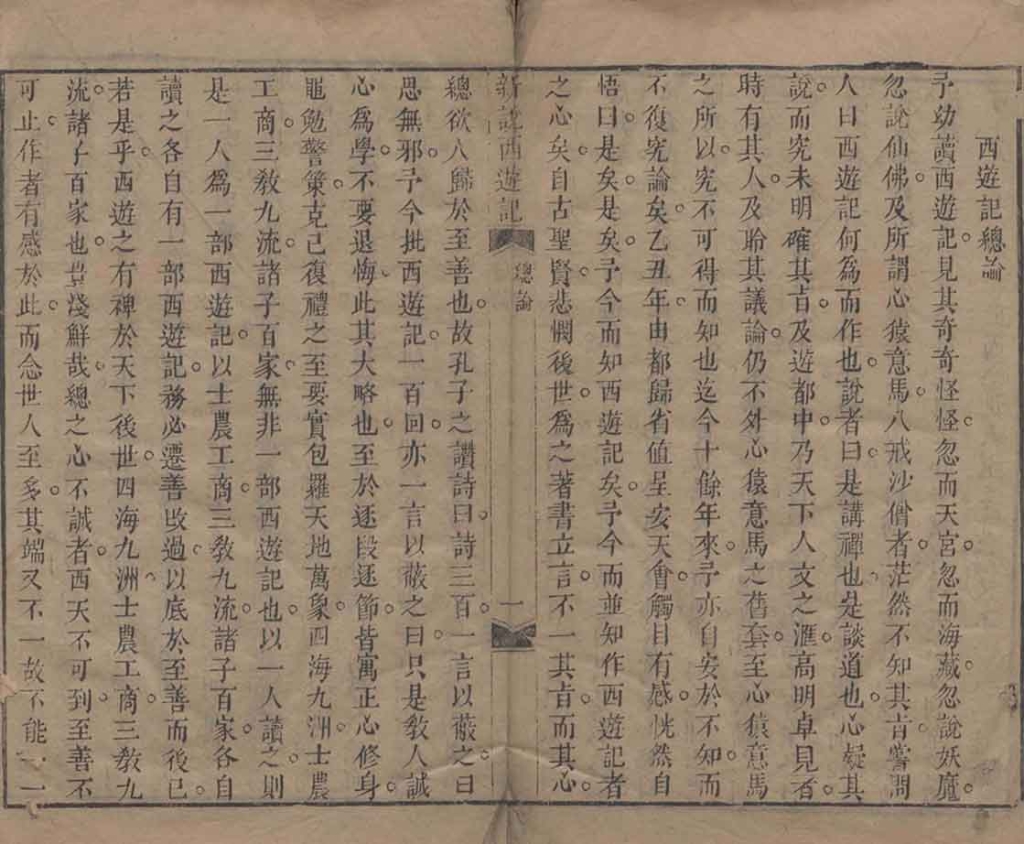 西遊記總論
予幼讀西遊記見其奇奇怪怪忽而天宮忽而海藏忽說妖魔
忽說仙佛及所謂心猿意馬八戒沙僧者茫然不知其㫖嘗問
人曰西遊記何爲而作也說者曰是講禪也是談道也心疑其
說而究未明確其㫖及遊都中乃天下人文之滙高明卓見者
時有其人及聆其議論仍不外心猿意馬之舊套至心猿意馬
之所以究不可得而知也迄今十餘年來予亦自安於不知而
不復究論矣乙丑年由都歸省值呈安天會觸目有感恍然自
悟曰是矣是矣予今而知西遊記矣予今而並知作西遊記者
之心矣自古聖賢悲憫後世爲之著書立言不一其㫖而其心
新說西遊記
總論
一
總欲人歸於至善也故孔子之讚詩曰詩三百一言以蔽之曰
思無邪予今批西遊記一百回亦一言以蔽之曰只是敎人誠
心爲學不要退悔此其大略也至於逐段逐節皆寓正心修身
黽勉警策克己復禮之至要實包羅天地萬象四海九洲士農
工商三敎九流諸子百家無非一部西遊記也以一人讀之則
是一人爲一部西遊記以士農工商三敎九流諸子百家各自
讀之各自有一部西遊記務必遷善改過以底於至善而後已
若是乎西遊之有裨於天下後世四海九洲士農工商三敎九
流諸子百家也豈淺鮮哉總之心不誠者西天不可到至善不
可止作者有感於此而念世人至多其端又不一故不能一一